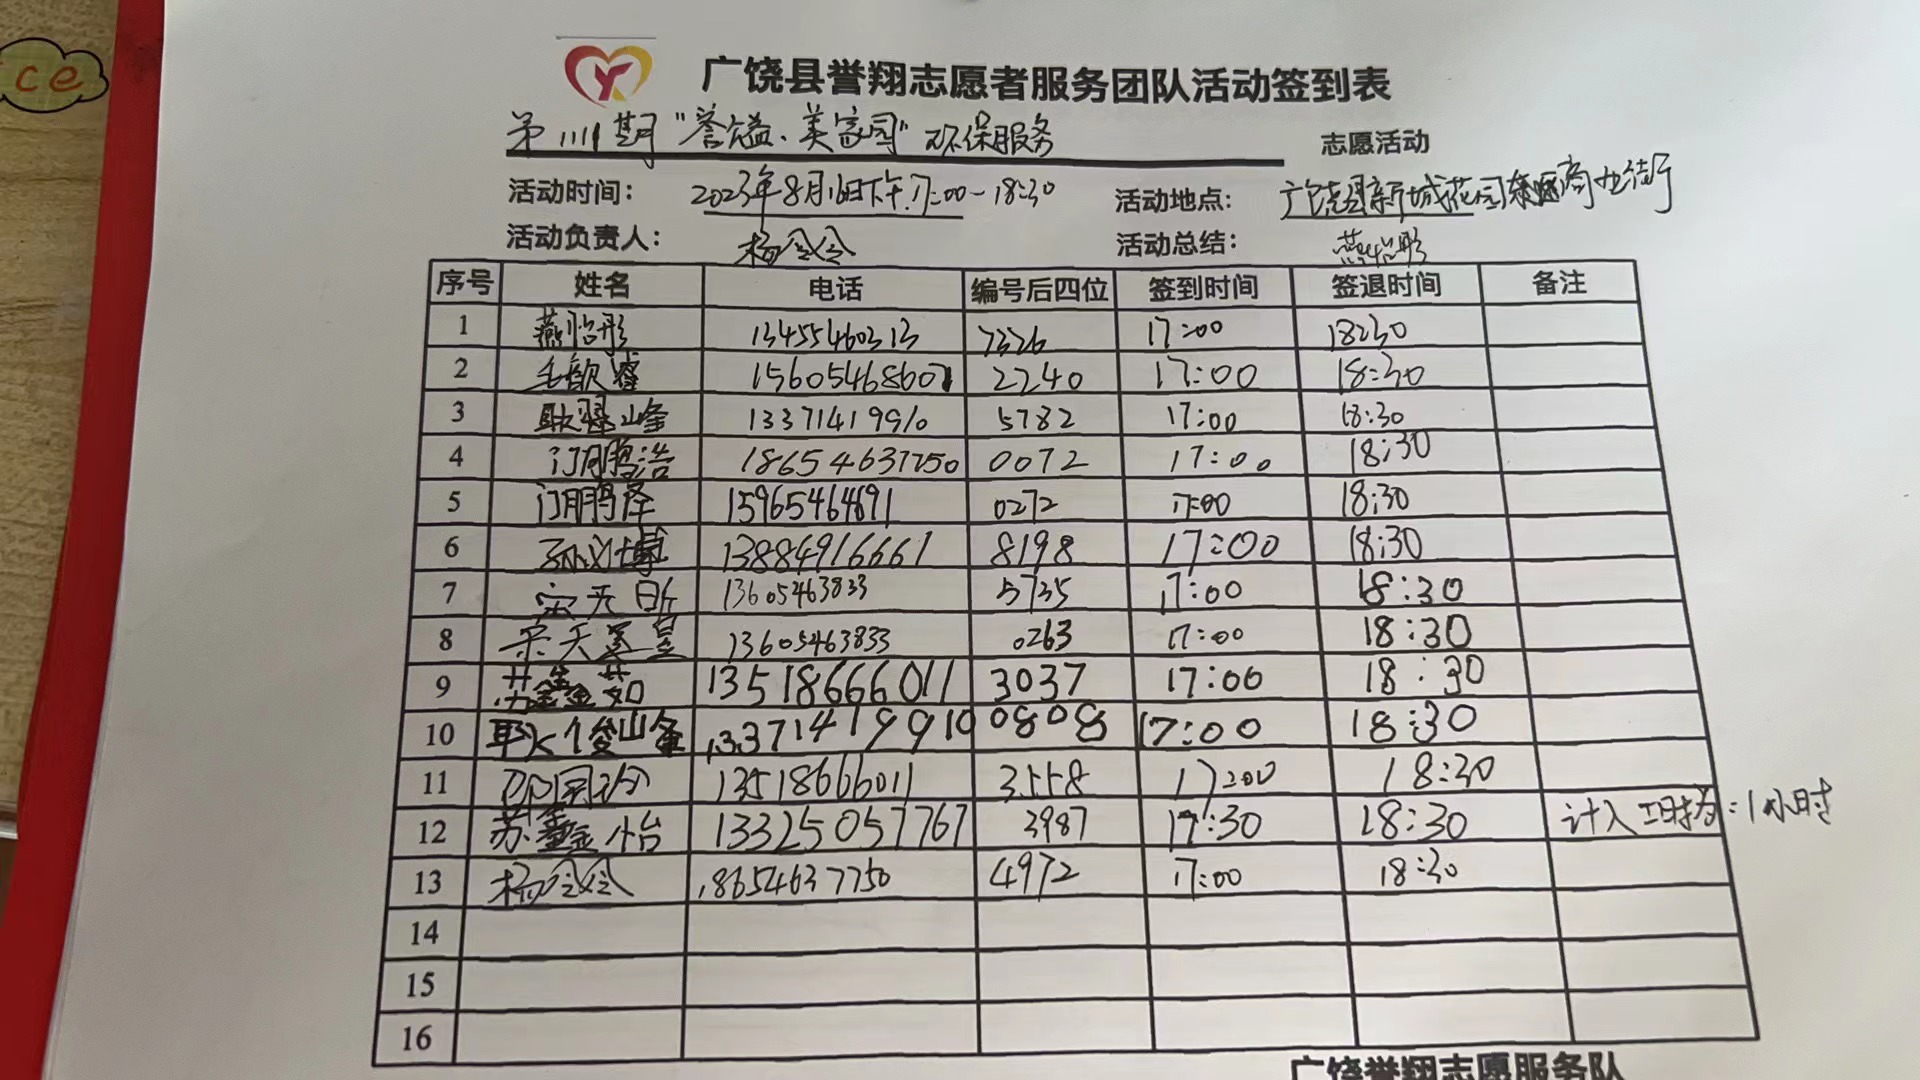 ce
广饶县誉翔志愿者服务团队活动签到表
第1111期“誉溢·美家园”环保服务 志愿活动
活动时间： 2023年8月16日下午17:00-18:30 活动地点： 广饶县新城花园东区商业街
活动负责人： 杨会会 活动总结： 燕怡彤
序号 姓名 电话 编号后四位 签到时间 签退时间 备注
1 燕怡彤 13455460313 7326 17:00 18:30
2 毛歆睿 15605468607 2240 17:00 18:30
3 耿翠峰 13371419910 5782 17:00 18:30
4 门鹏浩 18654637750 0072 17:00 18:30
5 门鹏泽 15965464691 0272 17:00 18:30
6 孙义博 13884916661 8198 17:00 18:30
7 宋天昕 13605463833 5735 17:00 18:30
8 宋天 13605463833 0263 17:00 18:30
9 苏鑫茹 13518666011 3037 17:00 18:30
10 耿俊峰 13371419910 0808 17:00 18:30
11 13518666011 3558 17:00 18:30
12 苏鑫怡 13325057767 3987 17:30 18:30 计入工时为：1小时
13 杨会会 18654637750 4972 17:00 18:30
14
15
16
广饶誉翔志愿服务队